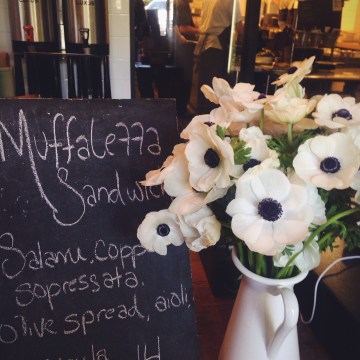 Muffalezza
Sandwic
Salami, Copp
sopressata.
olive spread, aioli.
14